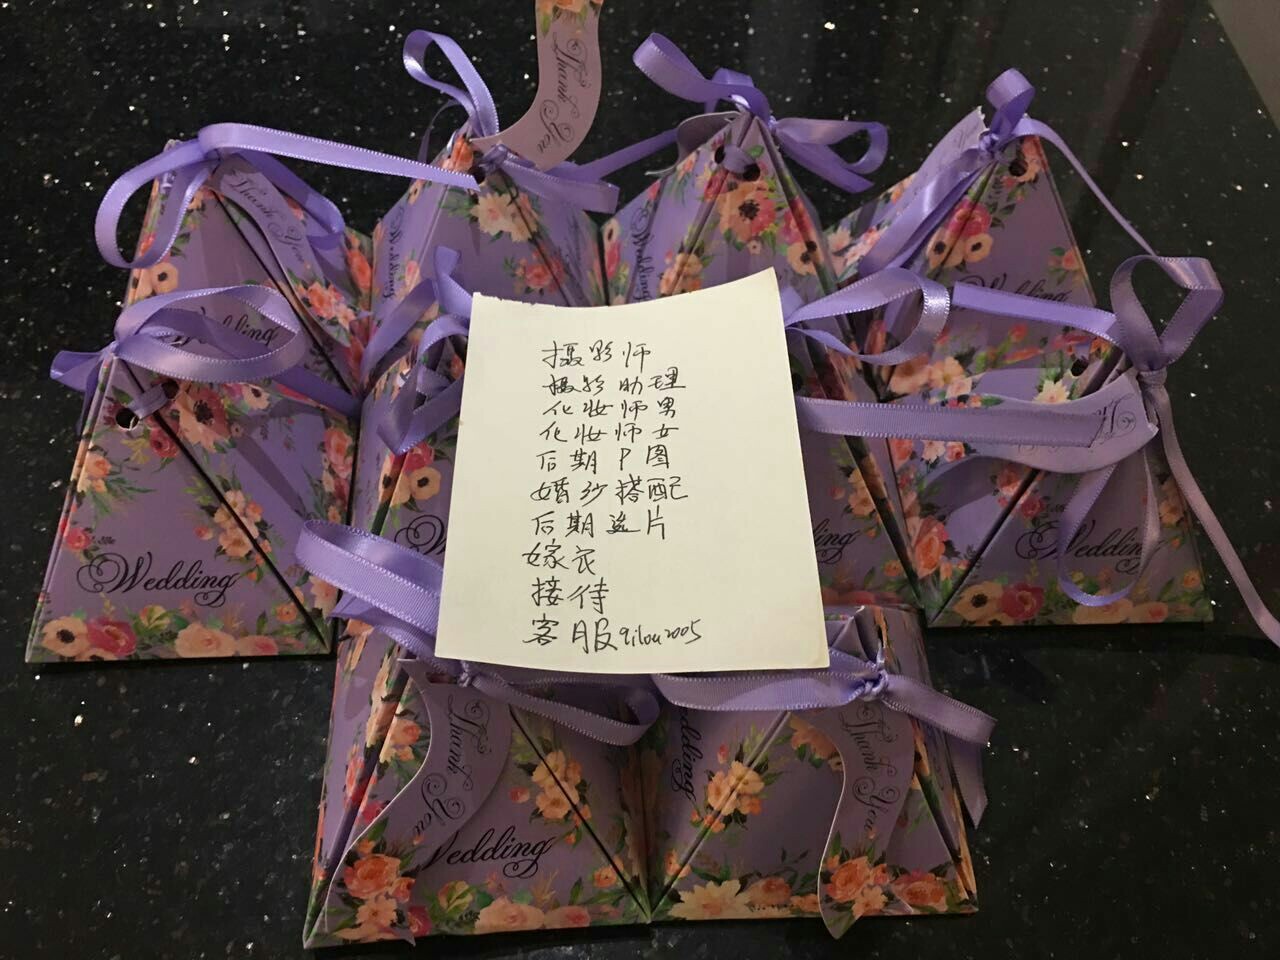 Thank You
Thank You
Wedding
Wedding
Wedding
Wedding
Wedding
Wedding
摄影师
摄影助理
化妆师男
化妆师女
后期P图
婚纱搭配
后期选片
嫁衣
接待
客服qilou2005
Thank You
Wedding
Thank You
Wedding